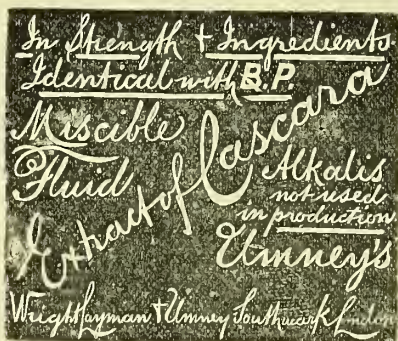 In Strength & Ingredients
Identical with B.P.
Miscible
Fluid
Extract of Cascara
Alkalis
not used
in production.
Umney's
Wright Layman & Umney Southwark London